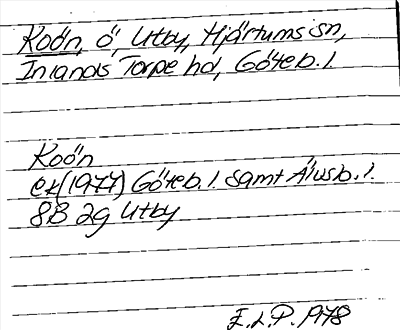 Koön, ö, Utby, Hjärtums sn,
Inlands Torpe hd, Göteb. l.
Koön
ek(1977) Göteb. l. samt Älvsb. l.
8B 2g Utby
E.L.P. 1978